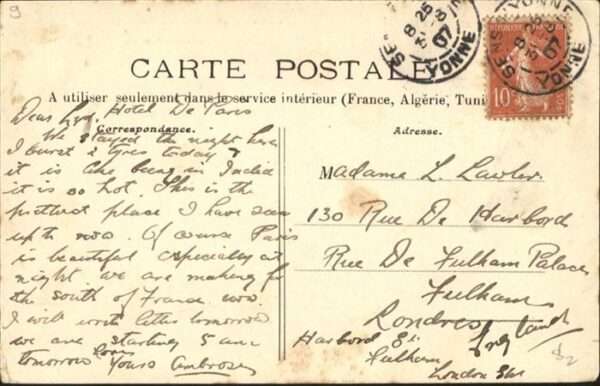 9
CARTE POSTALE
A utiliser seulement dans le service intérieur (France, Algérie, Tuni
Correspondance.
Adresse.
SENS YONNE
8 25
07
10
Dear Hotel De Paris
We stayed the night here
I burst 2 tyres today &
it is like being in India
it is so hot. This is the
prettiest place I have seen
up to now. Of course Paris
is beautiful especially at
night. We are making for
the south of France now.
I will write letter tomorrow
we are starting 5 am
tomorrow love
Yours Ambrose
Madame L. Lawler
130 Rue De Harbord
Rue De Fulham Palace
Fulham
Londres England
Harbord St
Fulham
London SW